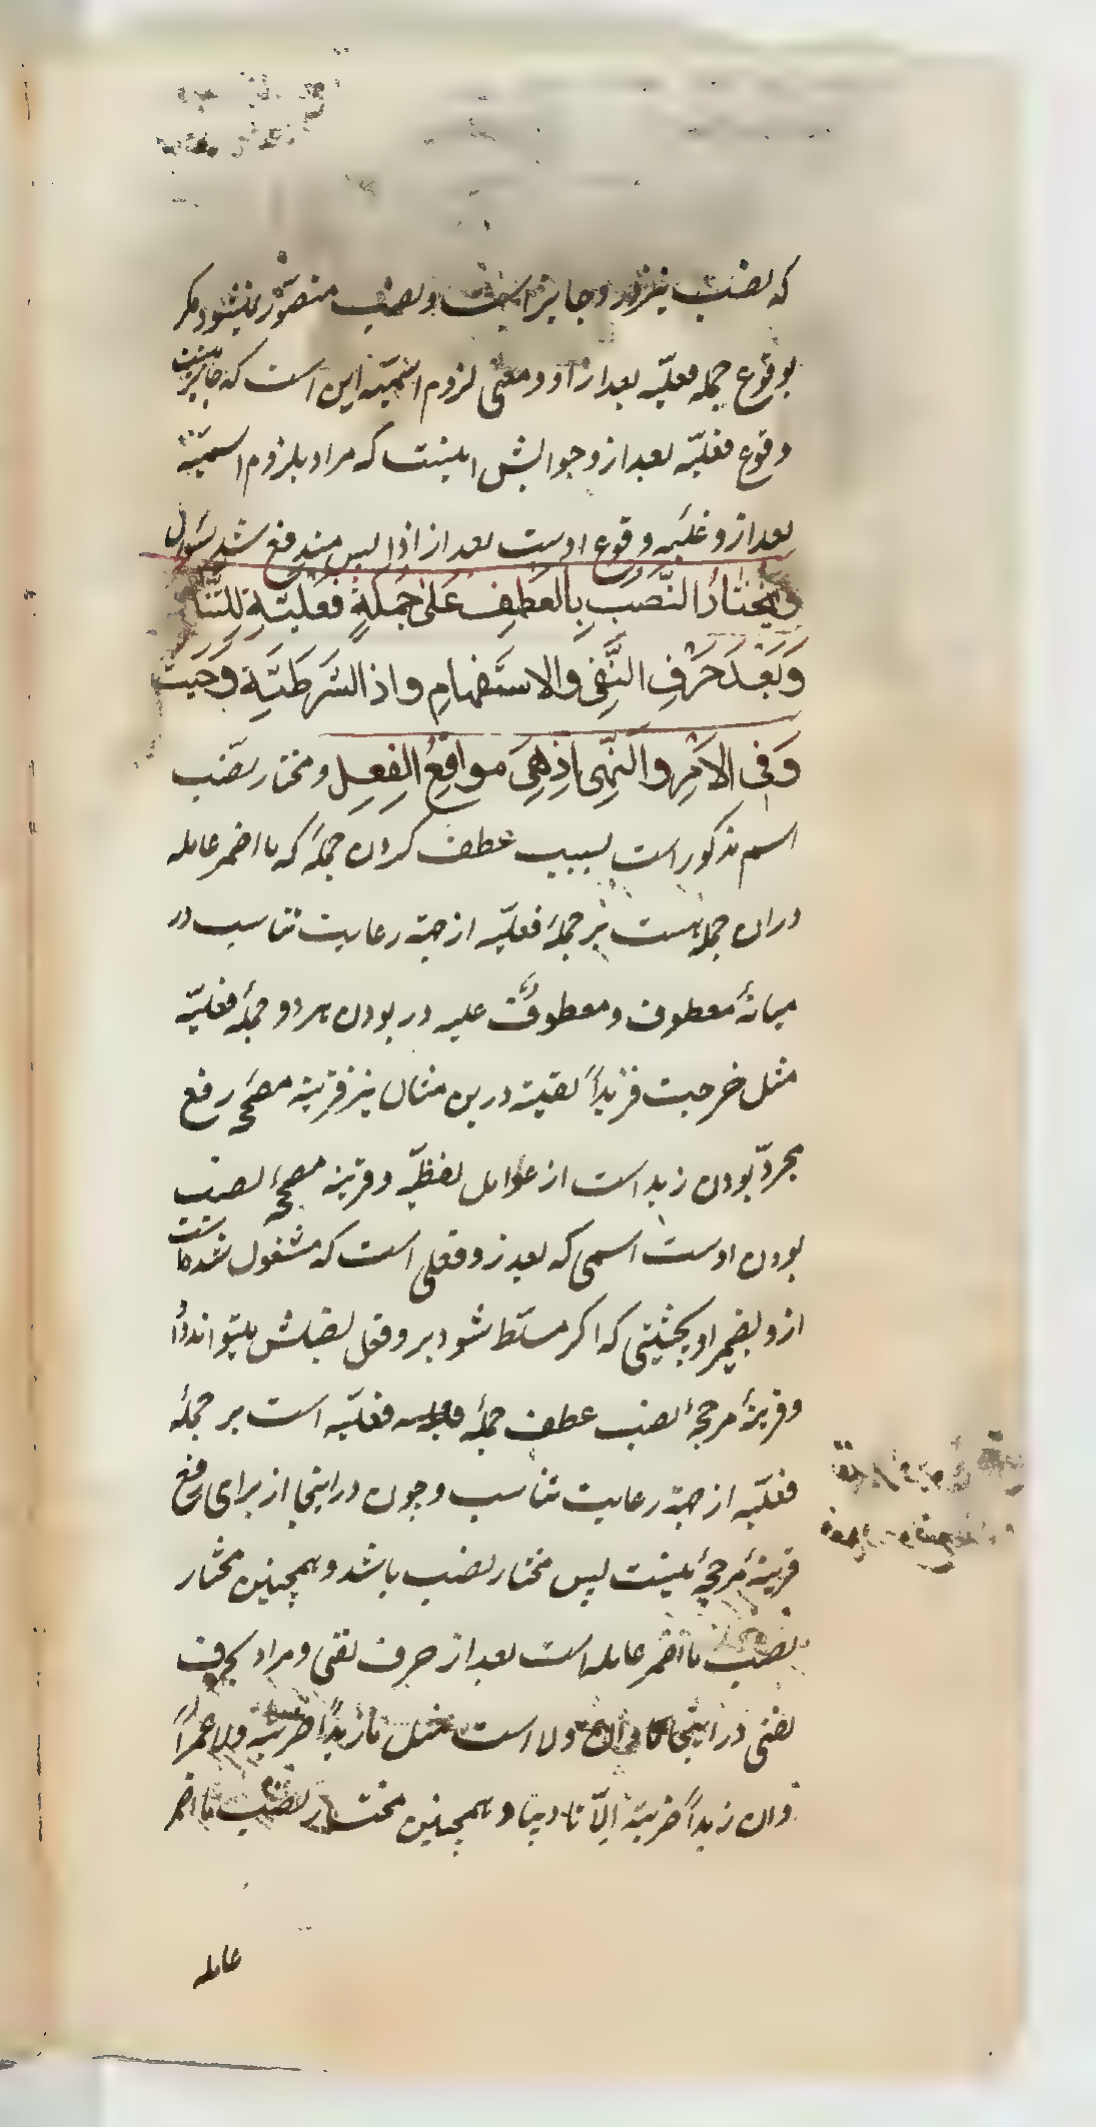 که نصب نیز درو جایز است و نصب متصور نمیشود مکر
بوقوع جمله فعلیّه بعد از او و معنی لزوم اسمیّه این است که جایز نیست
وقوع فعلیّه بعد ازو جوابش اینست که مراد بلزوم اسمیّة
بعد ازو غلبه وقوع اوست بعد از اذا پس مندفع شد سؤال
وَیُختارُ النَّصبُ بِالعَطفِ عَلی جُملَةٍ فِعلیّةٍ لِلتَّناسُب
وَبَعدَ حَرفِ النَّفی والاستفهامِ واذا الشَرطیّةِ وَحَیث
وَفی الاَمرِ وَالنَّهی اِذ هِیَ مَواقعُ الفِعلِ و مختار نصب
اسم مذکور است بسبب عطف کردن جملهٔ که ما اضمر عامله
در ان جمله است بر جملهٔ فعلیّه از جهة رعایت تناسب در
میانهٔ معطوف و معطوف علیه در بودن هر دو جملهٔ فعلیّه
مثل خرجت فزیداً لقیته درین مثال نیز قرینهٔ مصحّحهٔ رفع
مجرّد بودن زید است از عوامل لفظیّه و قرینهٔ مصحّحهٔ نصب
بودن اوست اسمی که بعد ازو فعلی است که مشغول شده است
ازو بضمیر او بحیثیتی که اکر مسلّط شود برو فعل نصبش میتواند داد
و قرینهٔ مرجّحهٔ نصب عطف جملهٔ فعلیّه است بر جملهٔ
فعلیّه از جهة رعایت تناسب و چون در اینجا از برای رفع
قرینهٔ مرجّحهٔ نیست پس مختار نصب باشد و همچنین مختار
نصب ما اضمر عامله است بعد از حرف نفی و مراد بحرف
نفی در اینجا ما و ان و لا است مثل ما زیداً ضربته ولا عمراً
وان زیداً ضربته الّا تادیبا و همچنین مختار نصب ما اضمر
عامله